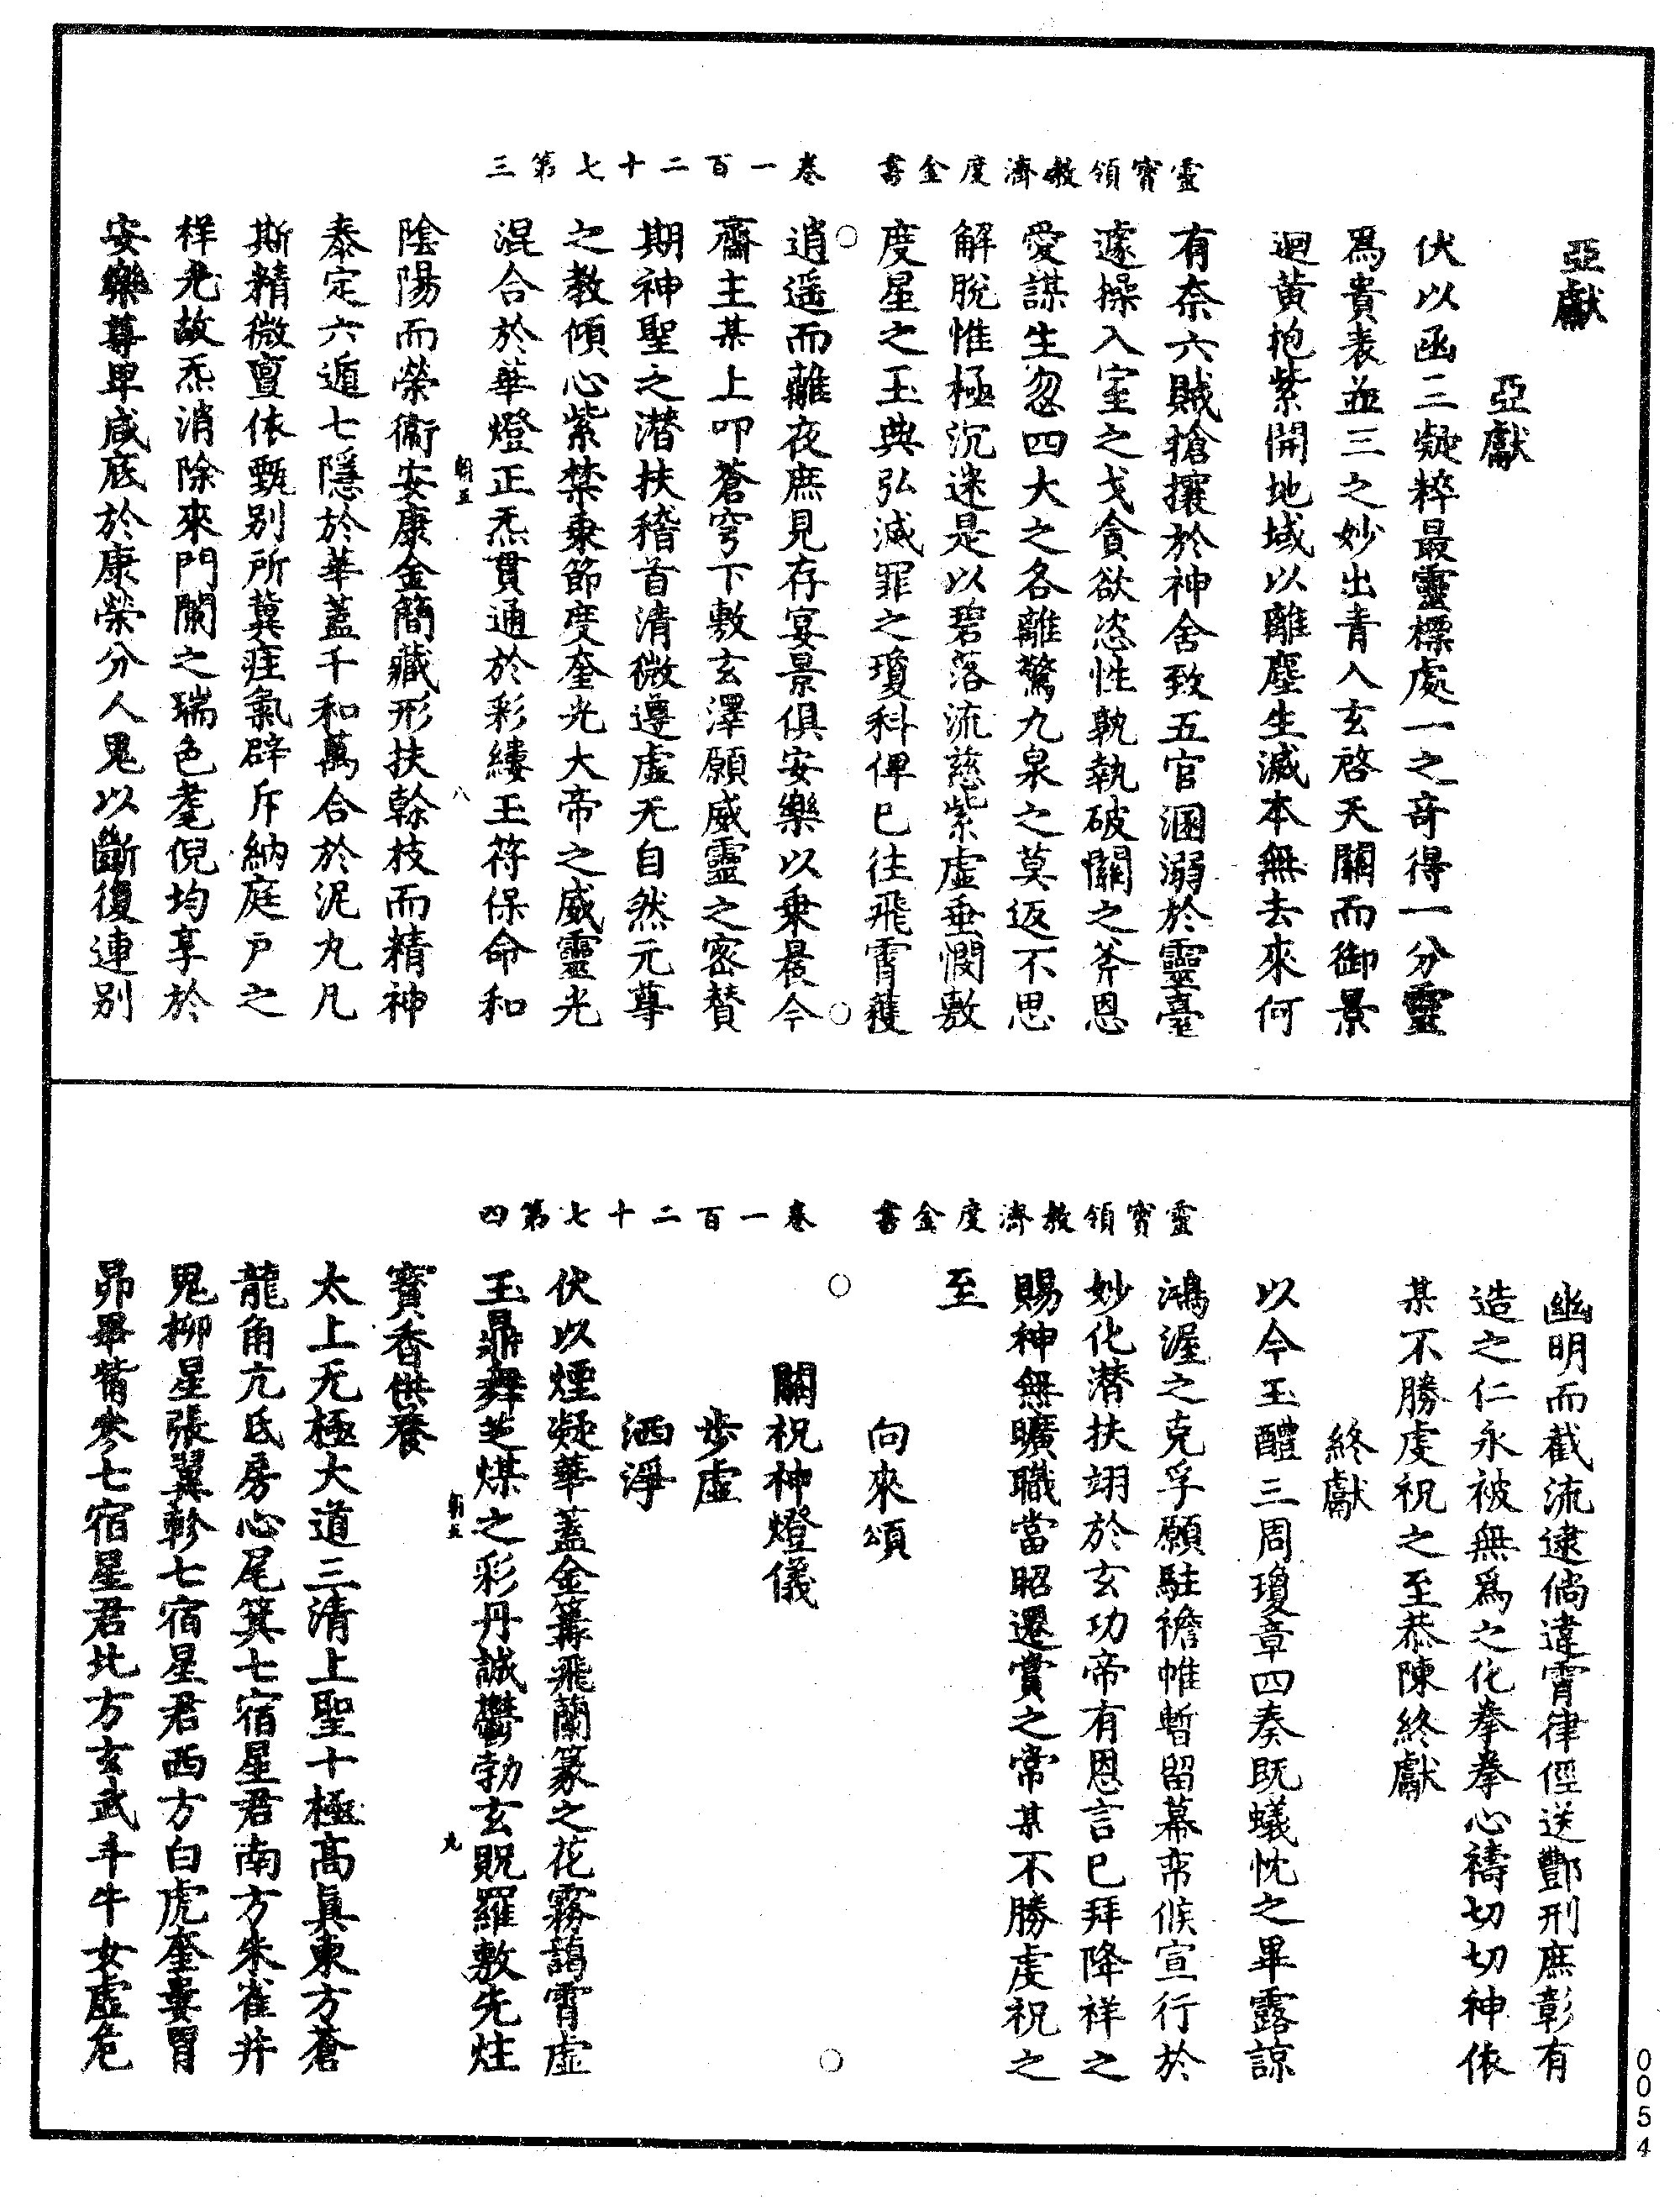 亞獻
亞獻
伏以函三凝粹最靈標處一之奇得一分靈
爲貴表並三之妙出青入玄啓天關而御景
迴黃抱紫開地域以離塵生滅本無去來何
有奈六賊搶攘於神舍致五官溷溺於靈臺
遽操入室之戈貪欲恣性孰執破關之斧恩
愛謀生忽四大之各離驚九泉之莫返不思
解脫惟極沉迷是以碧落流慈紫虛垂憫敷
度星之玉典弘滅罪之瓊科俾已往飛霄獲
靈寶領教濟度金書 卷一百二十七第三
逍遥而離夜庶見存宴景俱安樂以乘晨今
齋主某上叩蒼穹下敷玄澤願威靈之密贊
期神聖之潛扶稽首清微遵虛无自然元尊
之教傾心紫禁秉節度奎光大帝之威靈光
混合於華燈正炁貫通於彩縷玉符保命和
朝五 八
陰陽而榮衛安康金簡藏形扶榦枝而精神
泰定六遁七隱於華蓋千和萬合於泥丸凡
斯精微亶依甄别所冀疰氣辟斥納庭户之
祥尤故炁消除來門闌之瑞色耄倪均享於
安樂尊卑咸底於康榮分人鬼以斷復連别
幽明而截流逮倘違霄律徑送酆刑庶彰有
造之仁永被無爲之化拳拳心禱切切神依
某不勝虔祝之至恭陳終獻
終獻
以今玉醴三周瓊章四奏既蟻忱之畢露諒
鴻渥之克孚願駐襜帷暫留幕帟候宣行於
妙化潛扶翊於玄功帝有恩言已拜降祥之
賜神無曠職當昭遷賞之常某不勝虔祝之
至
向來頌
靈寶領教濟度金書 卷一百二十七第四
關祝神燈儀
步虛
洒淨
伏以煙凝華蓋金篝飛蘭篆之花霧藹霄虛
玉鼎舞芝煤之彩丹誠鬱勃玄貺羅敷先炷
朝五 九
寶香供養
太上无極大道三清上聖十極高真東方蒼
龍角亢氐房心尾箕七宿星君南方朱雀井
鬼柳星張翼軫七宿星君西方白虎奎婁胃
昴畢觜參七宿星君北方玄武斗牛女虛危
0054